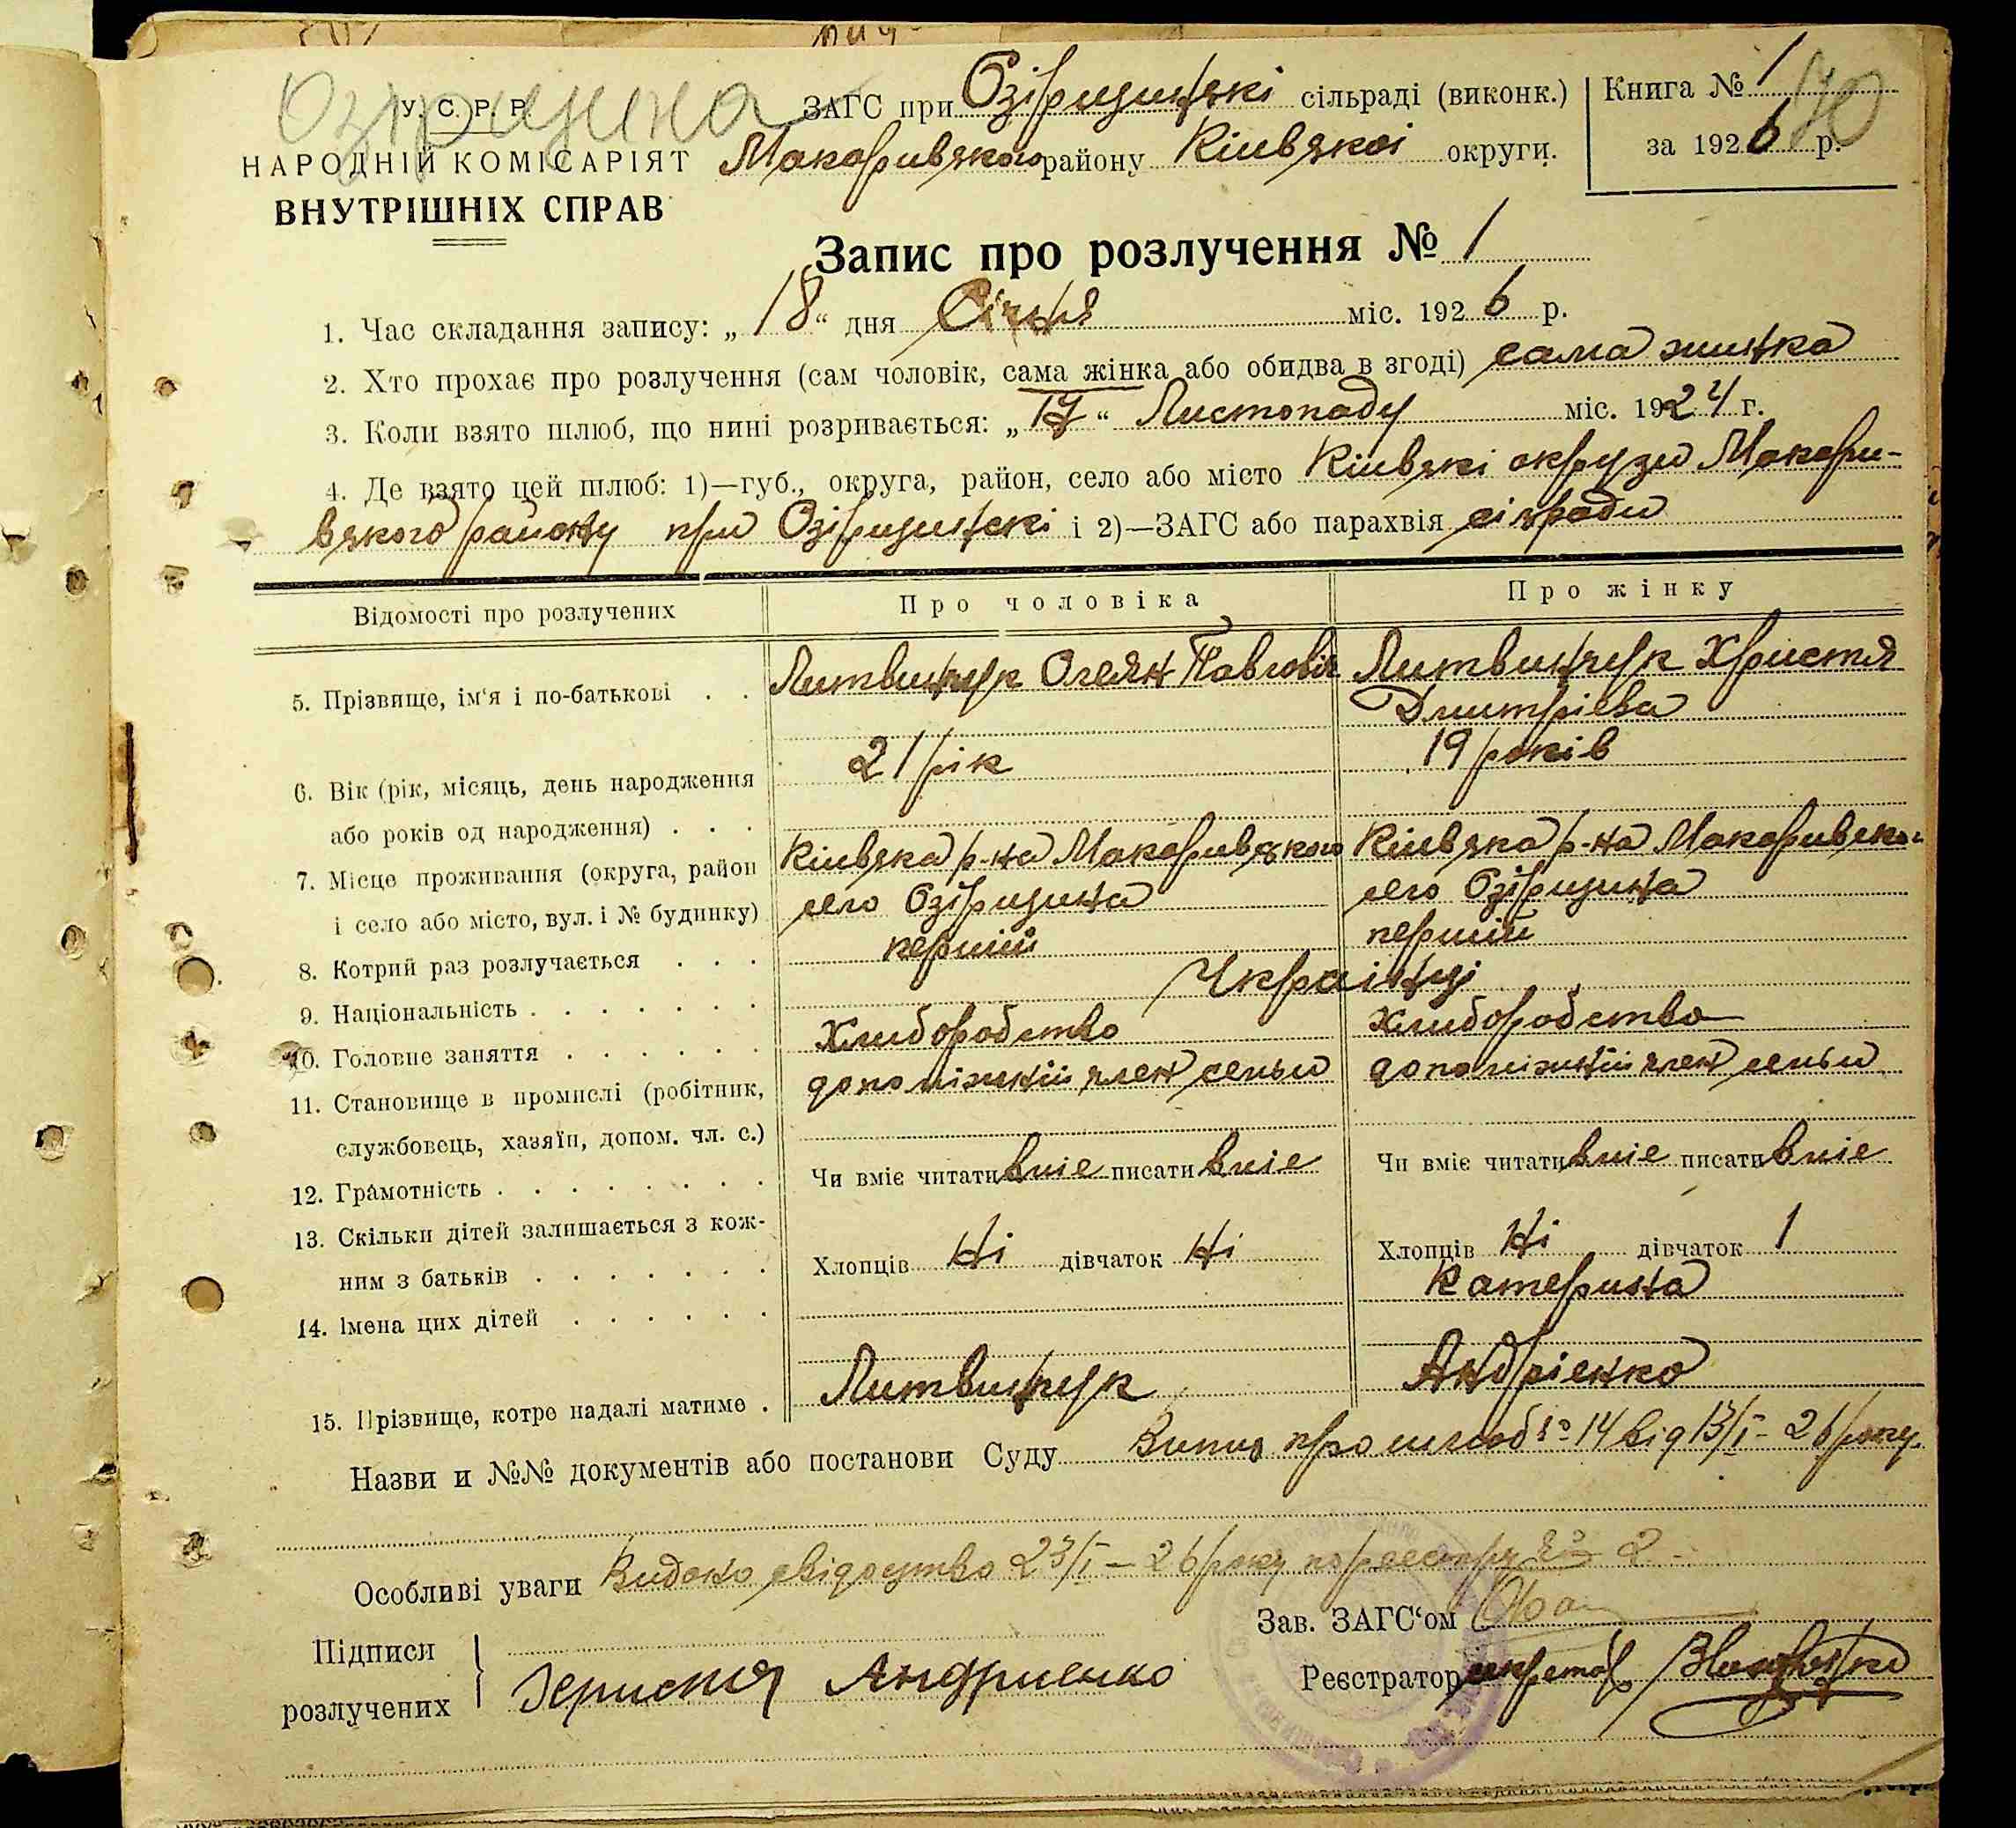 Озірщина
У. С. Р. Р.
НАРОДНІЙ КОМІСАРІЯТ
ВНУТРІШНІХ СПРАВ
ЗАГС при Озірщинскі сільраді (виконк.)
Макаривского району Кіивскоі округи.
Книга № 1
70
за 1926 р.
Запис про розлучення № 1
1. Час складання запису: „18“ дня Січня міс. 1926 р.
2. Хто прохає про розлучення (сам чоловік, сама жінка або обидва в згоді) сама жинка
3. Коли взято шлюб, що нині розривається: „17“ Листопаду міс. 1924 г.
4. Де взято цей шлюб: 1)—губ., округа, район, село або місто Кіивскі окрузи Макари-
вского району при Озірщинскі і 2)—ЗАГС або парахвія сілради
Відомості про розлучених
Про чоловіка
Про жінку
5. Прізвище, ім'я і по-батькові . . Литвинчук Олеян Павловіч Литвинчук Христя
Дмитріева
6. Вік (рік, місяць, день народження
або років од народження) . . . 21 рік 19 років
7. Місце проживання (округа, район Кіивска р-на Макаривского Кіивска р-на Макаривско
і село або місто, вул. і № будинку) село Озірщина село Озірщина
8. Котрий раз розлучається . . . перший перший
9. Національність . . . . . . . Украінці
10. Головне заняття . . . . . . Хлиборобство хлиборобство
11. Становище в промислі (робітник, допоміжній член семьи допоміжній член семьи
службовець, хазяїн, допом. чл. с.)
12. Грамотність . . . . . . . . Чи вміє читати вміе писати вміе Чи вміє читати вміе писати вміе
13. Скільки дітей залишається з кож-
ним з батьків . . . . . . . Хлопців Ні дівчаток Ні Хлопців Ні дівчаток 1
14. Імена цих дітей . . . . . . Катерина
15. Прізвище, котре надалі матиме . Литвинчук Андріенко
Назви и №№ документів або постанови Суду Випис про шлюб № 14 від 13/I - 26 року.
Особливі уваги Видано свідоцтво 23/I - 26 року по реестру № 2
Зав. ЗАГС'ом
Підписи
розлучених
Херистя Андриенко
Реєстратор секретар